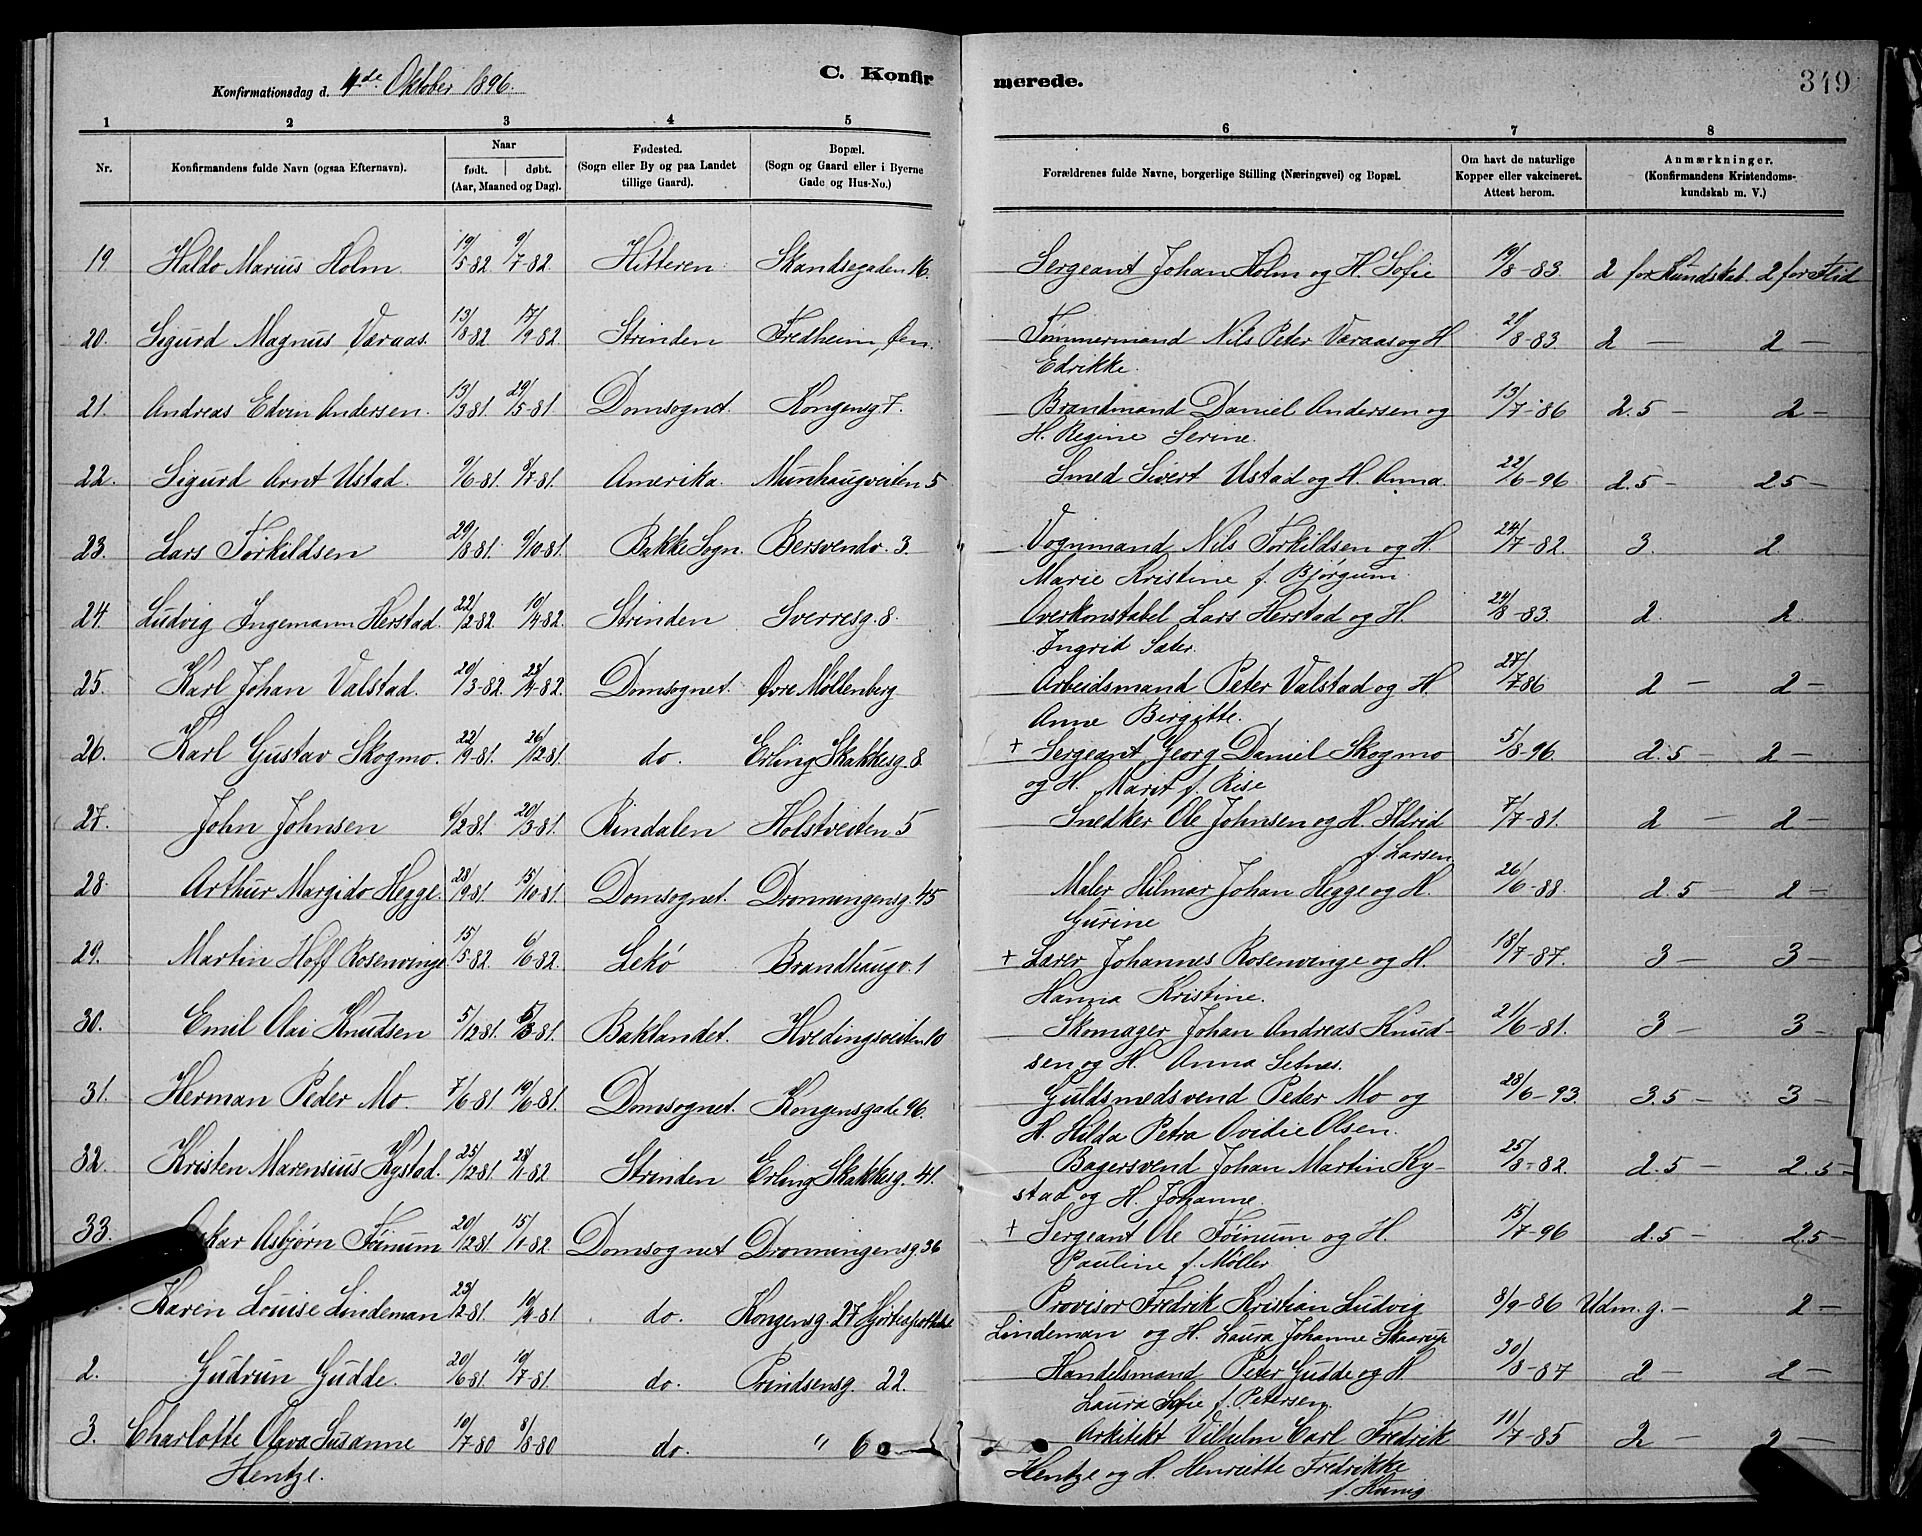 Konfirmationsdag d. 4de Oktober 1896.
C. Konfirmerede.
349
1 2 3 4 5 6 7 8
Nr. Konfirmandens fulde Navn (ogsaa Efternavn). Naar født. døbt. (Aar, Maaned og Dag). Fødested. (Sogn eller By og paa Landet tillige Gaard). Bopæl. (Sogn og Gaard eller i Byerne Gade og Hus-No.) Forældrenes fulde Navne, borgerlige Stilling (Næringsvei) og Bopæl. Om havt de naturlige Kopper eller vakcineret. Attest herom. Anmærkninger. (Konfirmandens Kristendomskundskab m. V.)
19 Haldo Marius Holm 19/5-82 9/7-82. Hitteren Skandsegaden 16. Sergeant Johan Holm og H. Sofie 19/8-83. 2 for Kundskab. 2 for Flid
20. Sigurd Magnus Væraas. 13/8-82 17/9-82. Strinden Fredheim, Øen. Tømmermand Nils Peter Væraas og H
Edrikke. 21/8-83. 2 — 2 —
21. Andreas Edvin Andersen. 13/3-81. 29/5-81. Domsognet. Kongensg 7. Brandmand Daniel Andersen og
H. Regine Serine. 13/7-86 2.5 — 2 —
22. Sigurd Arnt Ustad. 9/6-81. 9/7-81. Amerika. Munhaugveiten 5 Smed Sivert Ustad og H. Anna. 22/6-96 2.5 — 25 —
23. Lars Torkildsen 29/8-81. 9/10-81. Bakke Sogn. Bersvendv. 3. Vognmand Nils Torkildsen og H.
Marie Kristine f. Bjørgum. 24/7-82. 3. 2.
24. Ludvig Ingemann Herstad. 22/2-82. 10/4-82. Strinden Sverresg. 8. Overkonstabel Lars Herstad og H.
Ingrid Sæter. 24/8-83. 2. 2.
25. Karl Johan Valstad. 20/3-82. 23/4-82. Domsognet. Øvre Møllenberg Arbeidsmand Peter Valstad og H
Anne Birgitte. 27/7-86 2 — 2 —
26. Karl Gustav Skogmo. 22/9-81. 26/12-81. do. Erling Skakkesg. 8 + Sergeant Georg Daniel Skogmo
og H. Marit f. Rise 5/8-96. 2.5 — 2 —
27. John Johnsen 6/2-81. 20/3-81. Rindalen Holstveiten 5 Snedker Ole Johnsen og H. Ildrid
f. Larsen 7/7-81. 2 — 2 —
28. Arthur Margido Hegge. 28/9-81. 15/10-81. Domsognet. Dronningensg. 45 Maler Hilmar Johan Hegge og H.
Gurine 26/6-88. 2.5 — 2 —
29. Martin Hoff Rosenvinge. 15/5-82. 6/6-82. Lekø Brandhaugv. 1 + Lærer Johannes Rosenvinge og H.
Hanna Kristine. 18/7-87. 3 — 3 —
30. Emil Olai Knudsen 5/12-81. 5/3-81. Baklandet. Hvedingsveiten 10 Skomager Johan Andreas Knud-
sen og H. Anna Setnes. 21/6-81. 3 — 3 —
31. Herman Peder Mo. 7/6-81. 19/6-81. Domsognet. Kongensgade 96. Guldsmedsvend Peder Mo og
H. Hilda Petra Ovidie Olsen. 28/6-93. 3.5 — 3 —
32. Kristen Marensius Kystad. 25/12-81. 28/1-82. Strinden Erling Skakkesg. 41. Bagersvend Johan Martin Ky-
stad og H. Johanne. 25/8-82. 2.5 — 2.5 —
33. Oskar Asbjørn Føinum 20/12-81. 15/1-82. Domsognet Dronningensg. 36 + Sergeant Ole Føinum og H.
Pauline f. Møller 15/7-96 2.5 — 2.5 —
Karen Louise Lindeman 23/2-81. 19/4-81. do. Kongensg. 27 Hjorteapotheket Provisor Fredrik Kristian Ludvig
Lindeman og H. Laura Johanne Skaarup 8/9-86 Udm. g. — 2 —
2. Gudrun Gudde. 20/6-81. 19/7-81. do. Prindsensg. 22. Handelsmand Peter Gudde og H
Laura Sofie f. Petersen. 30/8-87 2 — 2 —
3. Charlotte Olava Susanne
Hentze. 10/7-80 8/8-80 do. " 60 Arkitekt Vilhelm Carl Fredrik
Hentze og H. Henriette Fredrikke 11/7-85 2 — 2 —